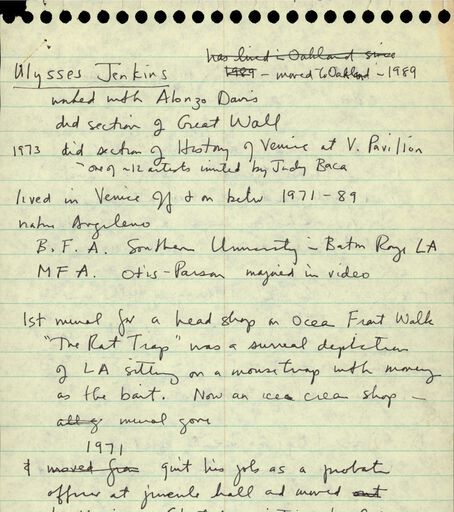 has lived in Oakland since
Ulysses Jenkins 1989 - moved to Oakland - 1989
worked with Alonzo Davis
did section of Great Wall
1973 did section of History of Venice at V. Pavilion
- one of ~12 artists invited by Judy Baca
lived in Venice off & on betw 1971-89
native Angeleno
B.F.A. Southern University - Baton Roge LA
MFA. Otis-Parson majored in video
1st mural for a head shop on Ocean Front Walk
"The Rat Trap" was a surreal depiction
of LA sitting on a mousetrap with money
as the bait. Now an ice cream shop -
all of mural gone
1971
& moved from quit his job as a probate
officer at juvenile hall and moved out